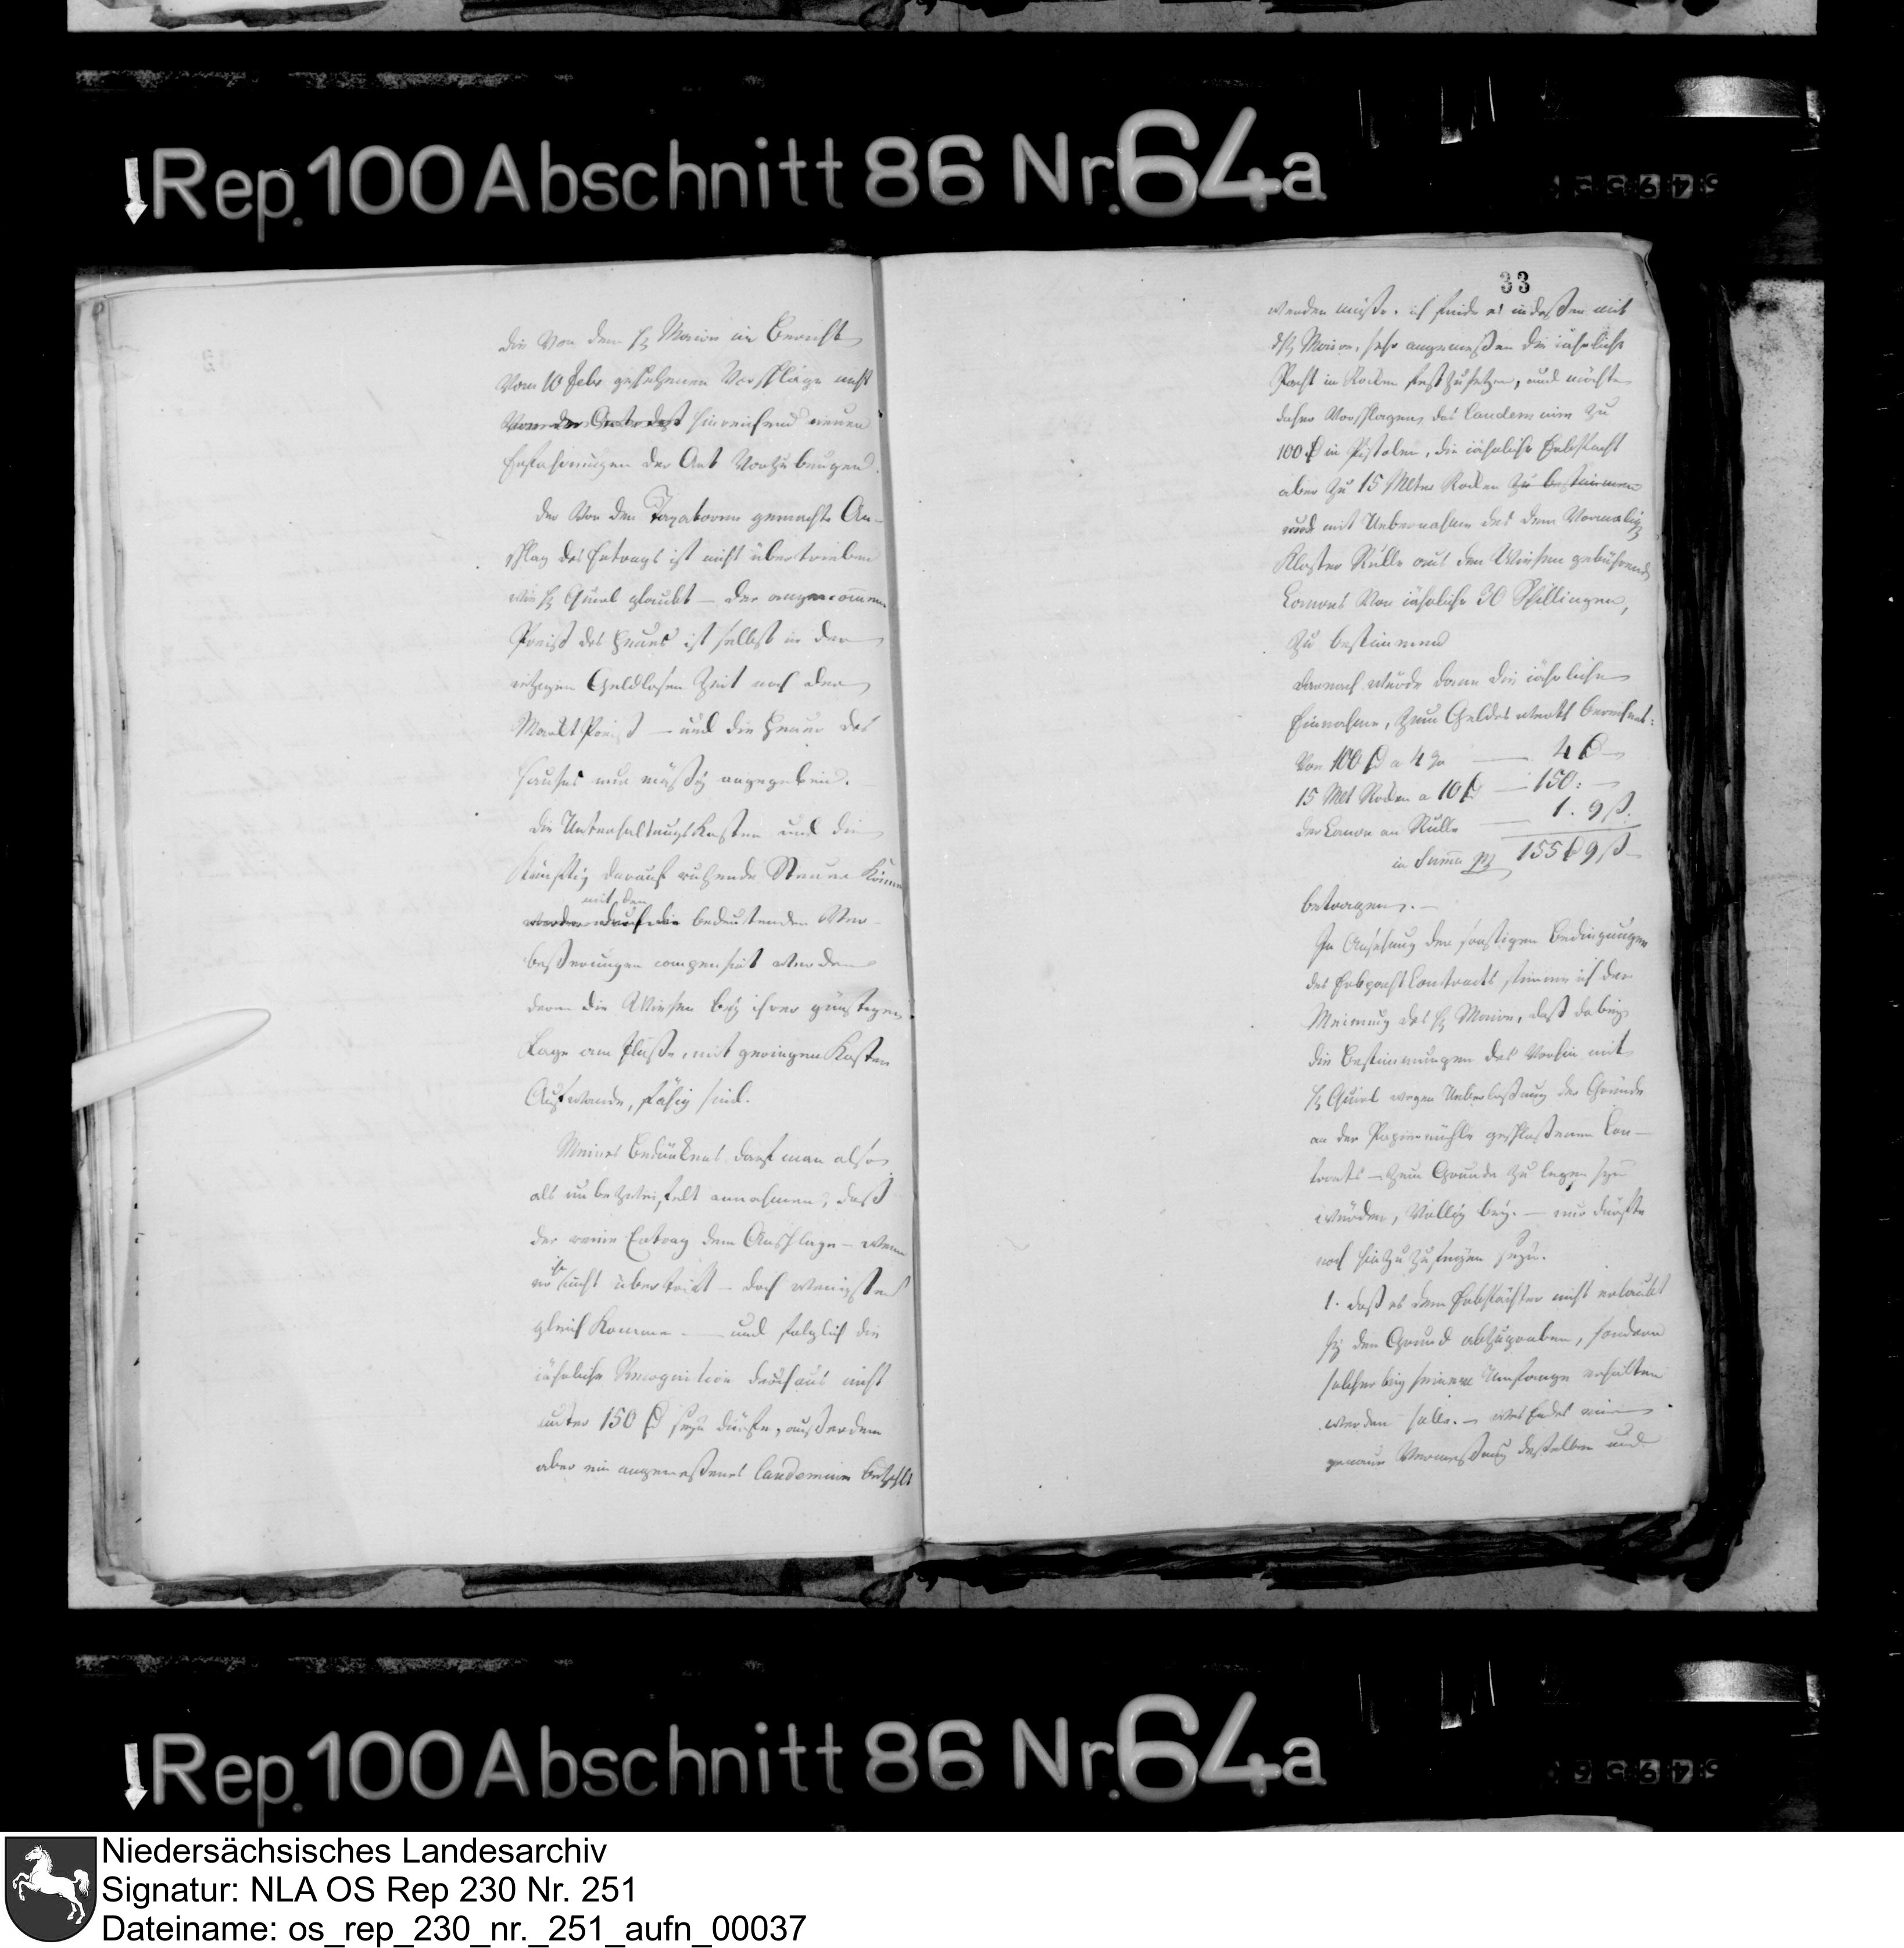 Rep. 100 Abschnitt 86 Nr. 64a
die von dem H Maire im Bericht
vom 10 Febr geschehenen Vorschläge nicht
hinreichend neuen
Erfahrungen der Art vorzubeugen.
Der von den Taxatoren gemachte An-
schlag des Ertrags ist nicht übertrieben
wie H Gruel glaubt — der angenommene
Preiß des Heues ist selbst in der
itzigen Geldlosen Zeit noch der
Markt Preiß — und die Heuer des
Hauses nur mäßig angegeben.
Die Unterhaltungs Kosten und die
künftig darauf ruhende Steuer können
mit den
bedeutenden Ver-
beßerungen compensirt werden
deren die Wiesen bey ihrer günstigen
Lage am Fluße, mit geringen Kosten
Aufwande, fähig sind.
Meines Bedünkens darf man also
als unbezweifelt annehmen, daß
der reine Ertrag dem Anschlage — wenn
er ihn nicht übertrift — doch wenigstens
gleich komme — und folglich die
jährliche Recognition durchaus nicht
unter 150 seyn dürfte, außerdem
aber ein angemeßenes Laudemium bezahlt
33
werden müße. ich finde es indeßen mit
d H Maire, sehr angemeßen die jährliche
Pacht in Rocken festzusetzen, und möchte
daher vorschlagen, das Laudemium zu
100 in Pistolen, die jährliche Erbpacht
aber zu 15 Mltr Rocken zu bestimmen
und mit Uebernahme des dem vormalig
Kloster Rulle aus den Wiesen gebührend
Canons von jährliche 30 Schillingen,
zu bestimmen
darnach würde dann die jährliche
Einnahme, zum Geldes werth berechnet:
Von 100 a 4 % — 4 —
15 Mlt Rocken a 10 — 150: —
der Canon an Rulle — 1. 9 ß.
in Summa 155 9 ß —
betragen. —
In Ansehung der sonstigen Bedingungen
des Erbpacht Contracts stimme ich der
Meinung des H Maire, daß dabey
die Bestimmungen des vorhin mit
H Gruel wegen Ueberlaßung der Gründe
an der Papiermühle geschloßenen Con-
tracts — zum Grunde zu legen seyn
würden, völlig bey. — nur dürfte
noch hinzuzufügen seyn.
1. daß es dem Erbpächter nicht erlaubt
sey den Grund abzugraben, sondern
solcher bey seinem Umfange erhalten
werden solle. — weshalb eine
genaue Vermeßung deßelben und
Rep. 100 Abschnitt 86 Nr. 64a
Niedersächsisches Landesarchiv
Signatur: NLA OS Rep 230 Nr. 251
Dateiname: os_rep_230_nr._251_aufn_00037